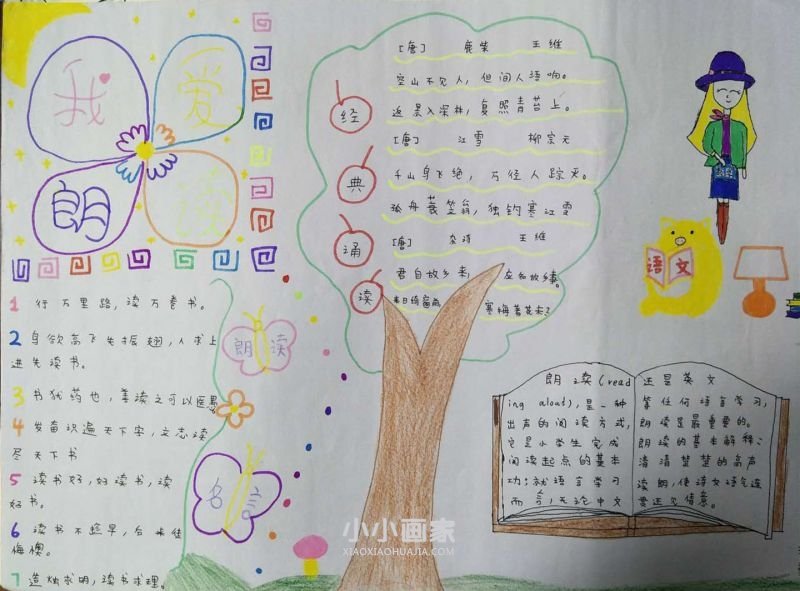 我
爱
朗
读
1 行万里路,读万卷书。
2 鸟欲高飞先振翅,人求上
进先读书。
3 书犹药也,善读之可以医愚
4 发奋识遍天下字,立志读
尽天下书
5 读书好,好读书,读
好书。
6 读书不趁早,后来徒
悔懊。
7 造烛求明,读书求理。
朗读
名
经
典
诵
读
[唐] 鹿柴 王维
空山不见人,但闻人语响。
返景入深林,复照青苔上。
[唐] 江雪 柳宗元
千山鸟飞绝,万径人踪灭。
孤舟蓑笠翁,独钓寒江雪
[唐] 杂诗 王维
君自故乡来,应知故乡
来日绮窗前 寒梅著花未?
语文
朗读(read
ing aloud),是一种
出声的阅读方式,
它是小学生完成
阅读起点的基本
功;就语言学习
而言,无论中文
还是英文
等任何语言学习,
朗读是最重要的。
朗读的基本解释:
清清楚楚的高声
读朗,使诗文语气连
贯
小小画家
XIAOXIAOHUAJIA.COM